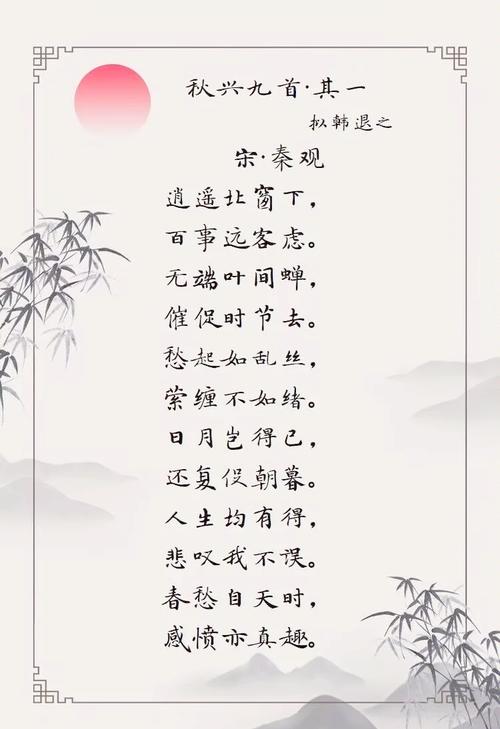 秋兴九首·其一
拟韩退之
宋·秦观
逍遥北窗下，
百事远客虑。
无端叶间蝉，
催促时节去。
愁起如乱丝，
萦缠不如绪。
日月岂得已，
还复促朝暮。
人生均有得，
悲叹我不误。
春愁自天时，
感愤亦真趣。